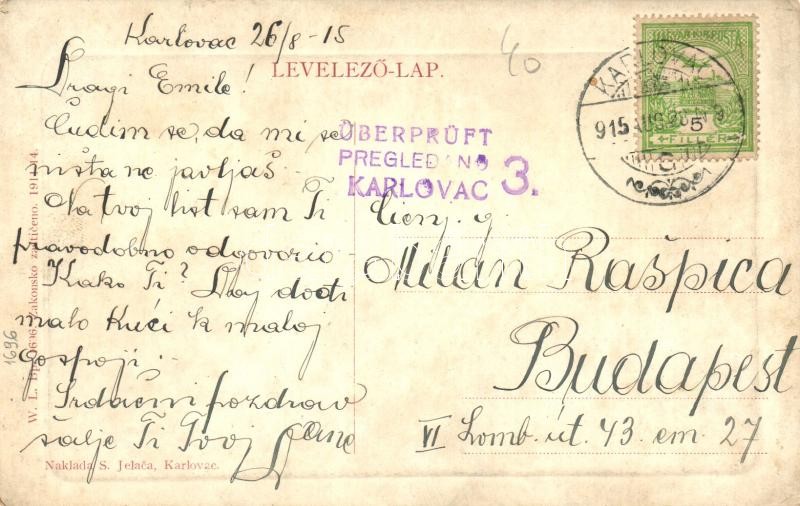 Karlovac 26/8-15
LEVELEZŐ-LAP.
40
Dragi Emile!
Čudim se, da mi se
ništa ne javljaš.
Na tvoj list sam Ti
pravodobno odgovorio
Kako Ti? Daj dođi
malo kući k maloj
gospoji.
Srdačni pozdrav
šalje Ti Tvoj
ÜBERPRÜFT
PREGLEDANO
KARLOVAC 3.
MAGYAR KIR. POSTA
5
FILLÉR
915 AUG 26
Cienj. g.
Milan Rašpica
Budapest
VI Lomb. út. 43. em. 27
1696
W. L. Bp. 1696. Zakonsko zaštićeno. 1911-14.
Naklada S. Jelača, Karlovac.